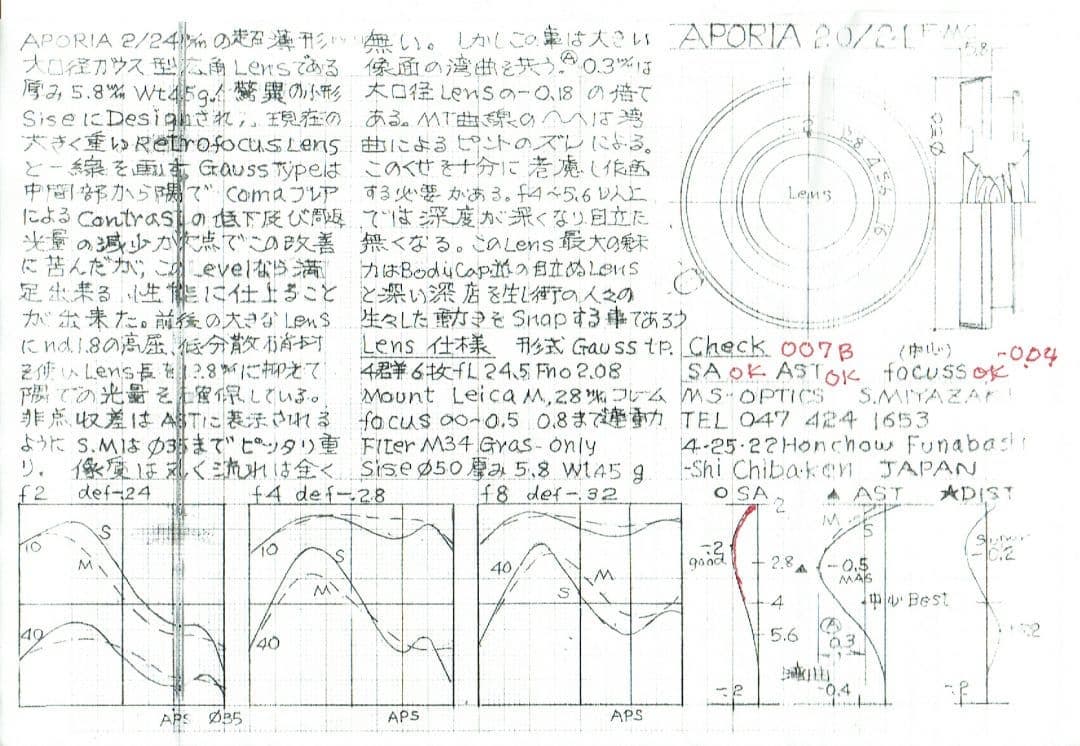 APORIA 2/24㎜の超薄形
大口径ガウス型広角Lensである
厚み5.8㎜ Wt45g! 驚異の小形
SiseにDesignされ,現在の
大きく重いRetrofocusLens
と一線を画す GaussTypeは
中間部から隅で Comaフレア
によるContrastの低下及び周辺
光量の減少が欠点でこの改善
に苦んだが,このLevelなら満
足出来る 性能に仕上ること
が出来た。前後の大きなLens
にnd1.8の高屈,低分散硝材
を使いLens長を13.8㎜に抑えて
隅での光量を確保している。
非点収差はASTに表示される
ように S.MはØ35まで ピッタリ重
り. 像度は丸く流れは全く
無い。しかしこの事は大きい
像面の湾曲を共う。Ⓐ0.3㎜は
大口径Lensの-0.18 の倍で
ある。MT曲線の へへは湾
曲によるピントのズレによる。
このくせを十分に考慮し作画
する必要がある。f4~5.6以上
では深度が深くなり目立た
無くなる。このLens最大の魅
力はBodyCap並の目立ぬLens
と深い深度を生し街の人々の
生々した動きをSnapする事であろう
Lens 仕様 形式 Gauss tp.
4群6枚 fL 24.5 Fno 2.08
Mount Leica M, 28㎜フレーム
focus ∞-0.5 0.8まで連動
Filter M34 Gras-only
Sise Ø50 厚み5.8 Wt45g
APORIA 2.0/24
5.8
Ø50
2 2.8 4 5.6 16
Lens
Check 007B (中心) -0.04
SA OK AST OK focuss OK
MS-OPTICS S.MIYAZAKI
TEL 047 424 1653
4-25-22 Honchow Funabashi
-Shi Chibaken JAPAN
f2 def-.24
f4 def-.28
f8 def-.32
○ SA ▲ AST ★DIST
10 S M 40
APS Ø35
10 S M 40
APS
40 M S
APS
2
-.2 good
2.8
4
5.6
-.2
M S
-0.5 MAS
中心Best
Ⓐ 0.3
-0.4
-0.2
-.2
-.2